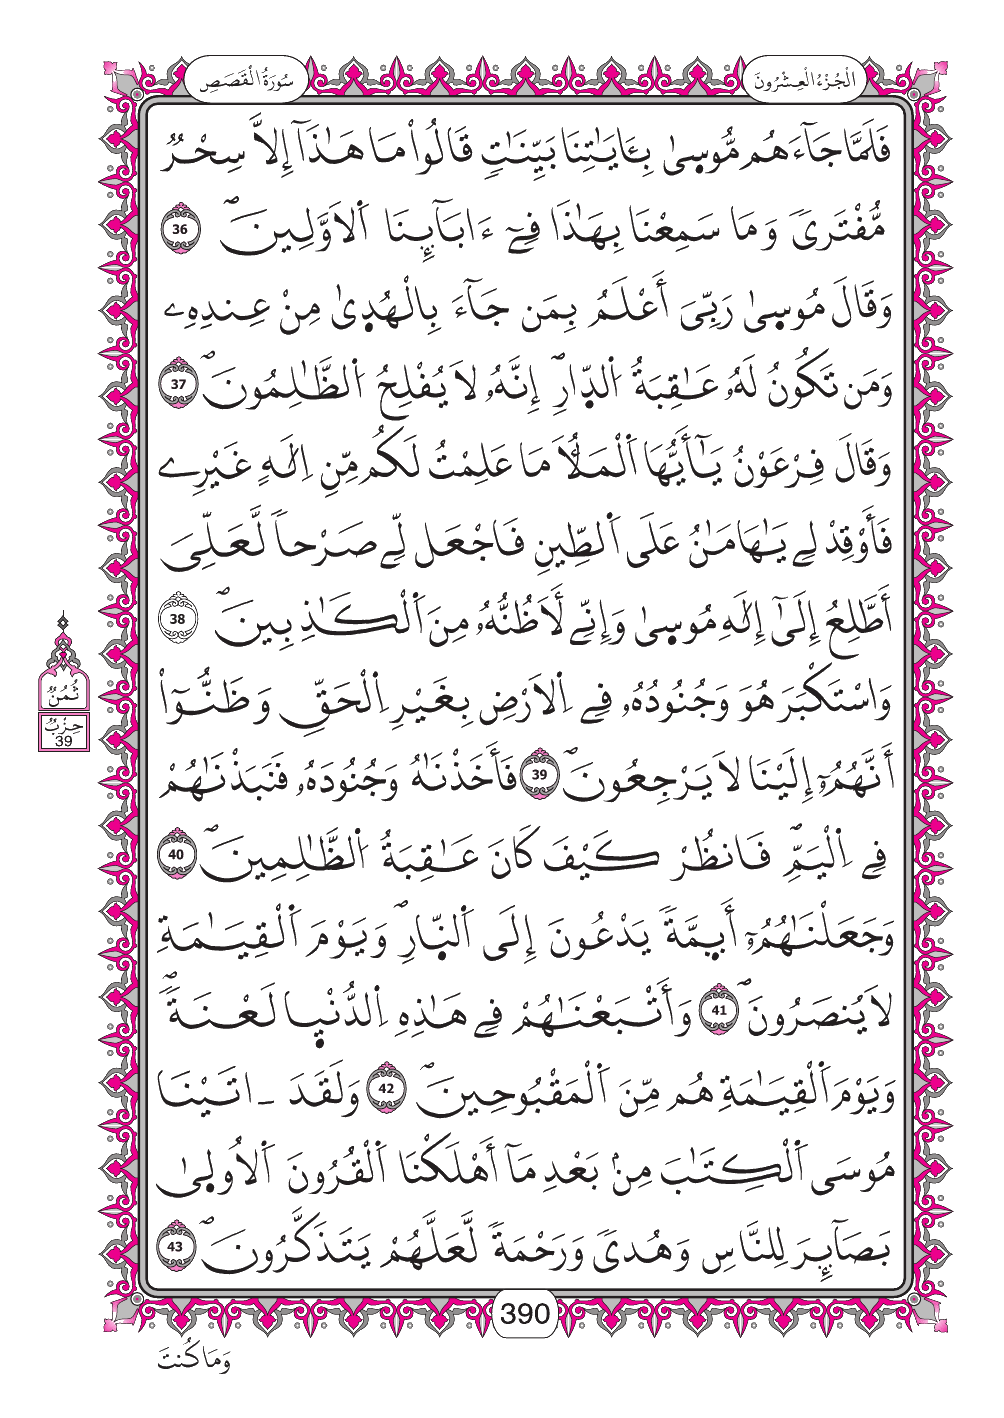 سُورَةُ الْقَصَصِ
الْجُزْءُ الْعِشْرُونَ
فَلَمَّا جَآءَهُم مُّوسٜىٰ بِـَٔايَٰتِنَا بَيِّنَٰتٖ قَالُواْ مَا هَٰذَآ إِلَّا سِحْرٞ
مُّفْتَرىٗ وَمَا سَمِعْنَا بِهَٰذَا فِےٓ ءَابَآئِنَا اَ۬لَاوَّلِينَۖ 36
وَقَالَ مُوسٜىٰ رَبِّيَ أَعْلَمُ بِمَن جَآءَ بِالْهُدٜىٰ مِنْ عِندِهِۦ
وَمَن تَكُونُ لَهُۥ عَٰقِبَةُ اُ۬لدّ۪ارِۖ إِنَّهُۥ لَا يُفْلِحُ اُ۬لظَّٰلِمُونَۖ 37
وَقَالَ فِرْعَوْنُ يَٰٓأَيُّهَا اَ۬لْمَلَأُ مَا عَلِمْتُ لَكُم مِّنِ اِلَٰهٍ غَيْرِے
فَأَوْقِدْ لِے يَٰهَٰمَٰنُ عَلَى اَ۬لطِّينِ فَاجْعَل لِّے صَرْحاٗ لَّعَلِّيَ
أَطَّلِعُ إِلَىٰٓ إِلَٰهِ مُوسٜىٰ وَإِنِّے لَأَظُنُّهُۥ مِنَ اَ۬لْكَٰذِبِينَۖ 38
وَاسْتَكْبَرَ هُوَ وَجُنُودُهُۥ فِے اِ۬لَارْضِ بِغَيْرِ اِ۬لْحَقِّ وَظَنُّوٓاْ
أَنَّهُمُۥٓ إِلَيْنَا لَا يَرْجِعُونَۖ 39 فَأَخَذْنَٰهُ وَجُنُودَهُۥ فَنَبَذْنَٰهُمْ
فِے اِ۬لْيَمِّۖ فَانظُرْ كَيْفَ كَانَ عَٰقِبَةُ اُ۬لظَّٰلِمِينَۖ 40
وَجَعَلْنَٰهُمُۥٓ أَئِمَّةٗ يَدْعُونَ إِلَى اَ۬لنّ۪ارِۖ وَيَوْمَ اَ۬لْقِيَٰمَةِ
لَا يُنصَرُونَۖ 41 وَأَتْبَعْنَٰهُمْ فِے هَٰذِهِ اِ۬لدُّنْي۪ا لَعْنَةٗۖ
وَيَوْمَ اَ۬لْقِيَٰمَةِ هُم مِّنَ اَ۬لْمَقْبُوحِينَۖ 42 وَلَقَدَ ـ اتَيْنَا
مُوسَى اَ۬لْكِتَٰبَ مِنۢ بَعْدِ مَآ أَهْلَكْنَا اَ۬لْقُرُونَ اَ۬لُاول۪ىٰ
بَصَآئِرَ لِلنَّاسِ وَهُدىٗ وَرَحْمَةٗ لَّعَلَّهُمْ يَتَذَكَّرُونَۖ 43
ثُمُنُ
حِزْبٞ
39
390
وَمَا كُنتَ